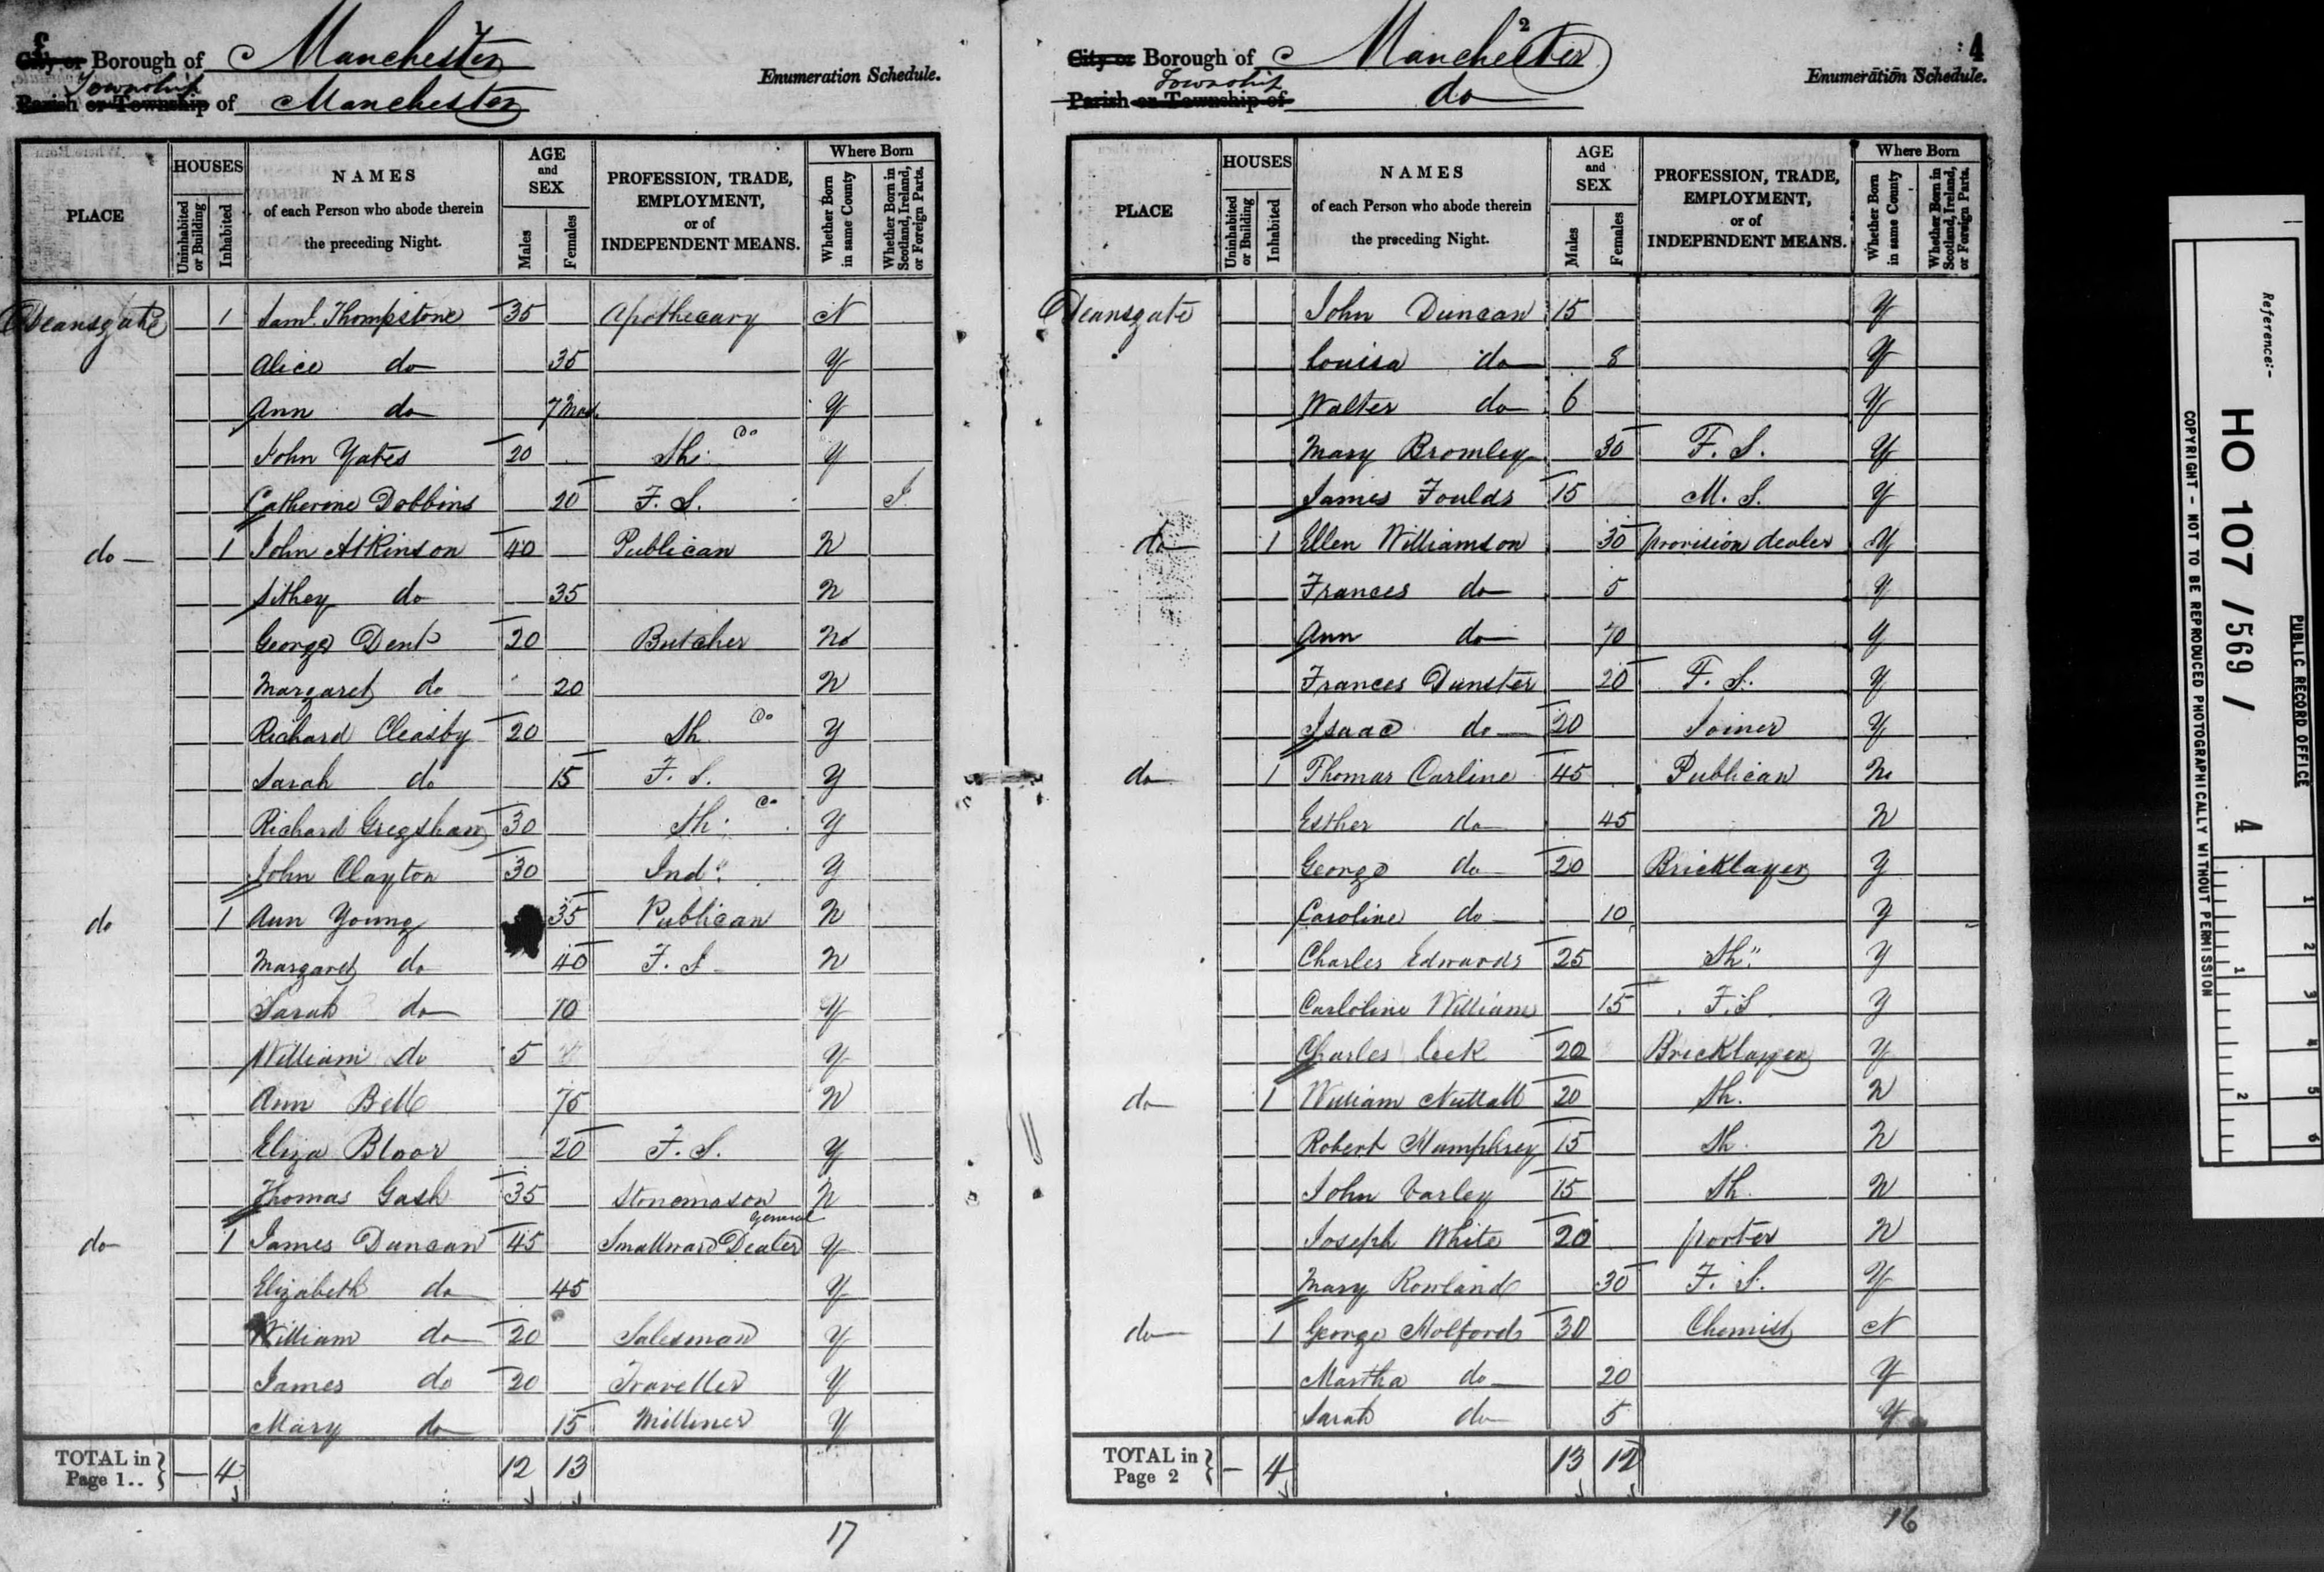 1
City or Borough of Manchester
Enumeration Schedule.
Township
Parish or Township of Manchester
PLACE
HOUSES
Uninhabited or Building
Inhabited
NAMES
of each Person who abode therein
the preceding Night.
AGE
and
SEX
Males
Females
PROFESSION, TRADE,
EMPLOYMENT,
or of
INDEPENDENT MEANS.
Where Born
Whether Born in same County
Whether Born in Scotland, Ireland, or Foreign Parts.
Deansgate 1 Saml. Thompstone 35 Apothecary N
Alice do 35 Y
Ann do 7 Mos. Y
John Yates 20 Sh: Do Y
Catherine Dobbins 20 F. S. I
do 1 John Atkinson 40 Publican N
Sithey do 35 N
George Dent 20 Butcher No
Margaret do 20 N
Richard Cleasby 20 Sh Do Y
Sarah do 15 F. S. Y
Richard Gregshaw 30 Sh. Do Y
John Clayton 30 Ind. Y
do 1 Ann Young 35 Publican N
Margaret do 40 F. S. N
Sarah do 10 Y
William do 5 Y
Ann Bell 75 N
Eliza Bloor 20 F. S. Y
Thomas Gash 35 Stonemason N
General
do 1 James Duncan 45 Smallware Dealer Y
Elizabeth do 45 Y
William do 20 Salesman Y
James do 20 Traveller Y
Mary do 15 Milliner Y
TOTAL in Page 1.. } — 4 12 13
17
2
4
City or Borough of Manchester
Enumeration Schedule.
Township
Parish or Township of do
PLACE
HOUSES
Uninhabited or Building
Inhabited
NAMES
of each Person who abode therein
the preceding Night.
AGE
and
SEX
Males
Females
PROFESSION, TRADE,
EMPLOYMENT,
or of
INDEPENDENT MEANS.
Where Born
Whether Born in same County
Whether Born in Scotland, Ireland, or Foreign Parts.
Deansgate John Duncan 15 Y
Louisa do 8 Y
Walter do 6 Y
Mary Bromley 30 F. S. Y
James Foulds 15 M. S. Y
do 1 Ellen Williamson 30 provision dealer Y
Frances do 5 Y
Ann do 70 Y
Frances Dunster 20 F. S. Y
Isaac do 20 Joiner Y
do 1 Thomas Carline 45 Publican No
Esther do 45 N
George do 20 Bricklayer Y
Caroline do 10 Y
Charles Edwards 25 Sh. Y
Carloline William 15 F. S. Y
Charles Leek 20 Bricklayer Y
do 1 William Nuttall 20 Sh. N
Robert Mumphrey 15 Sh. N
John Varley 15 Sh. N
Joseph White 20 porter N
Mary Rowland 30 F. S. Y
do 1 George Molford 30 Chemist N
Martha do 20 Y
Sarah do 5 Y
TOTAL in Page 2 } — 4 13 12
16
Reference:-
HO 107 / 569 / 4
PUBLIC RECORD OFFICE
COPYRIGHT - NOT TO BE REPRODUCED PHOTOGRAPHICALLY WITHOUT PERMISSION
1 2 3 4 5 6
1 2